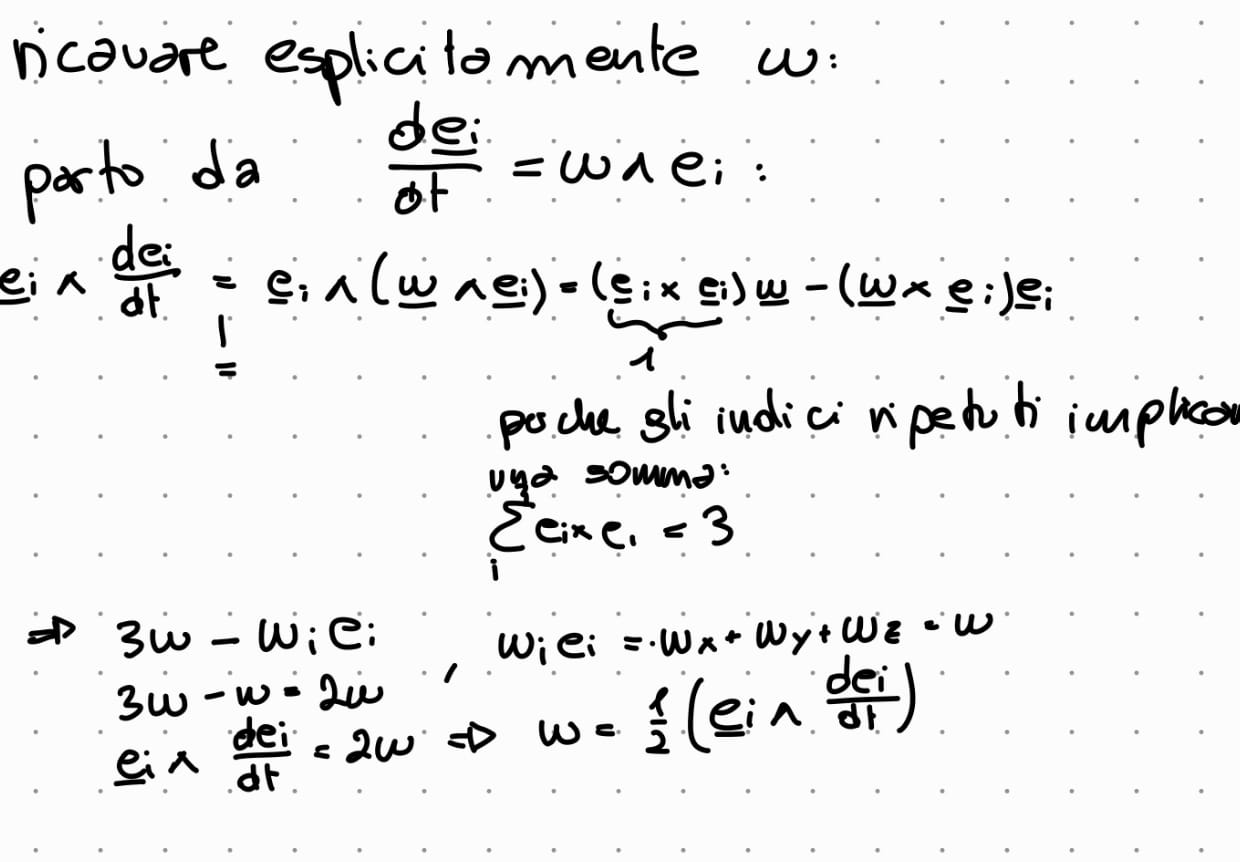 ricavare esplicitamente ω:
parto da de̲i/dt = ω ∧ ei :
e̲i ∧ de̲i/dt = e̲i ∧ (ω̲ ∧ e̲i) = (e̲i × e̲i) ω̲ − (ω̲ × e̲i) e̲i
! =
1
poiche gli indici ripetuti implicon
una somma:
Σi ei × ei = 3
⇒ 3ω − ωi ei , ωi ei = ωx + ωy + ωz = ω
3ω − ω = 2ω
e̲i ∧ dei/dt = 2ω ⇒ ω = 1/2 (e̲i ∧ dei/dt)